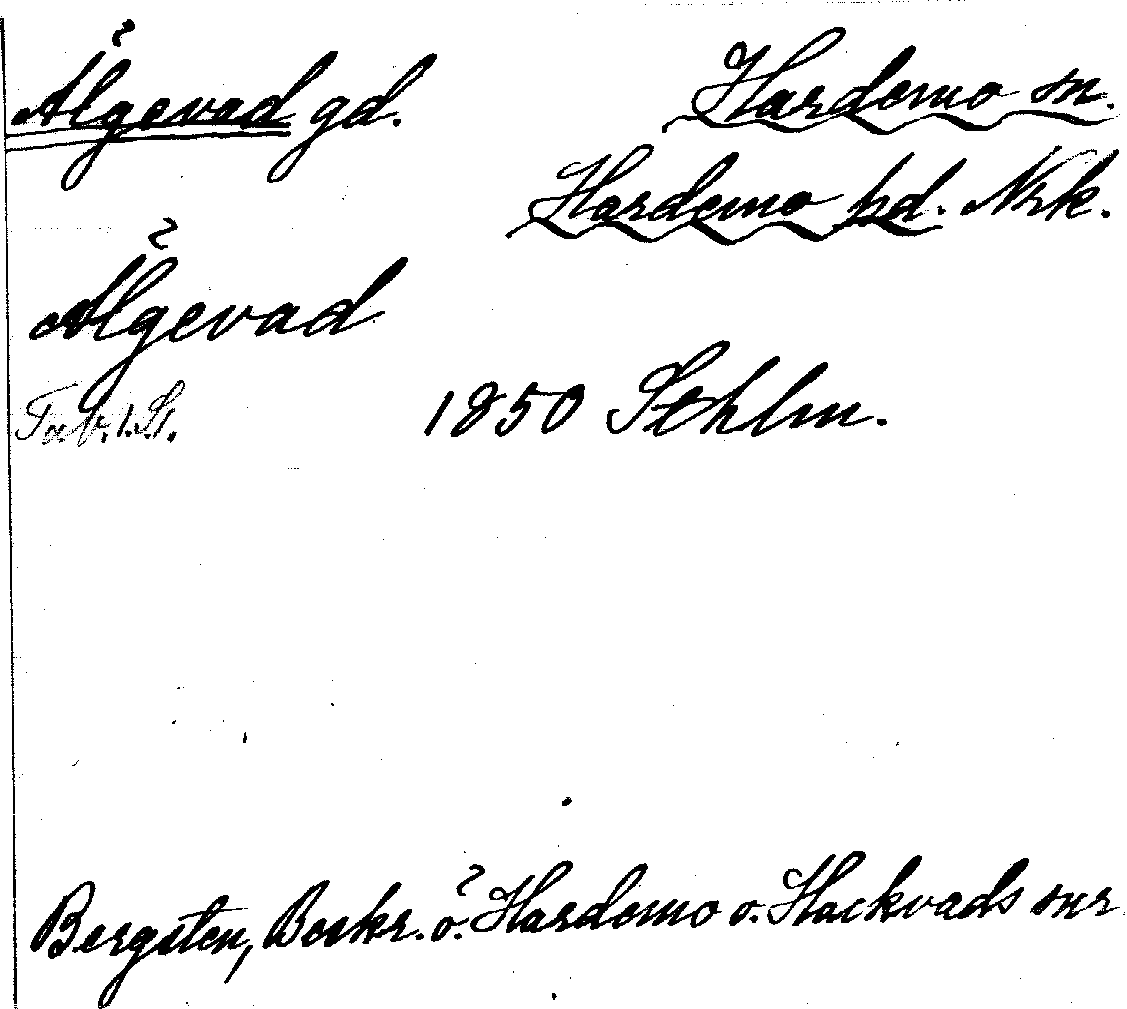 Älgevad gd. Hardemo sn.
Hardemo hd. Nrk.
Älgevad
Tab. 1. St. 1850 Sthlm.
Bergsten, Beskr. ö. Hardemo o. Hackvads snr